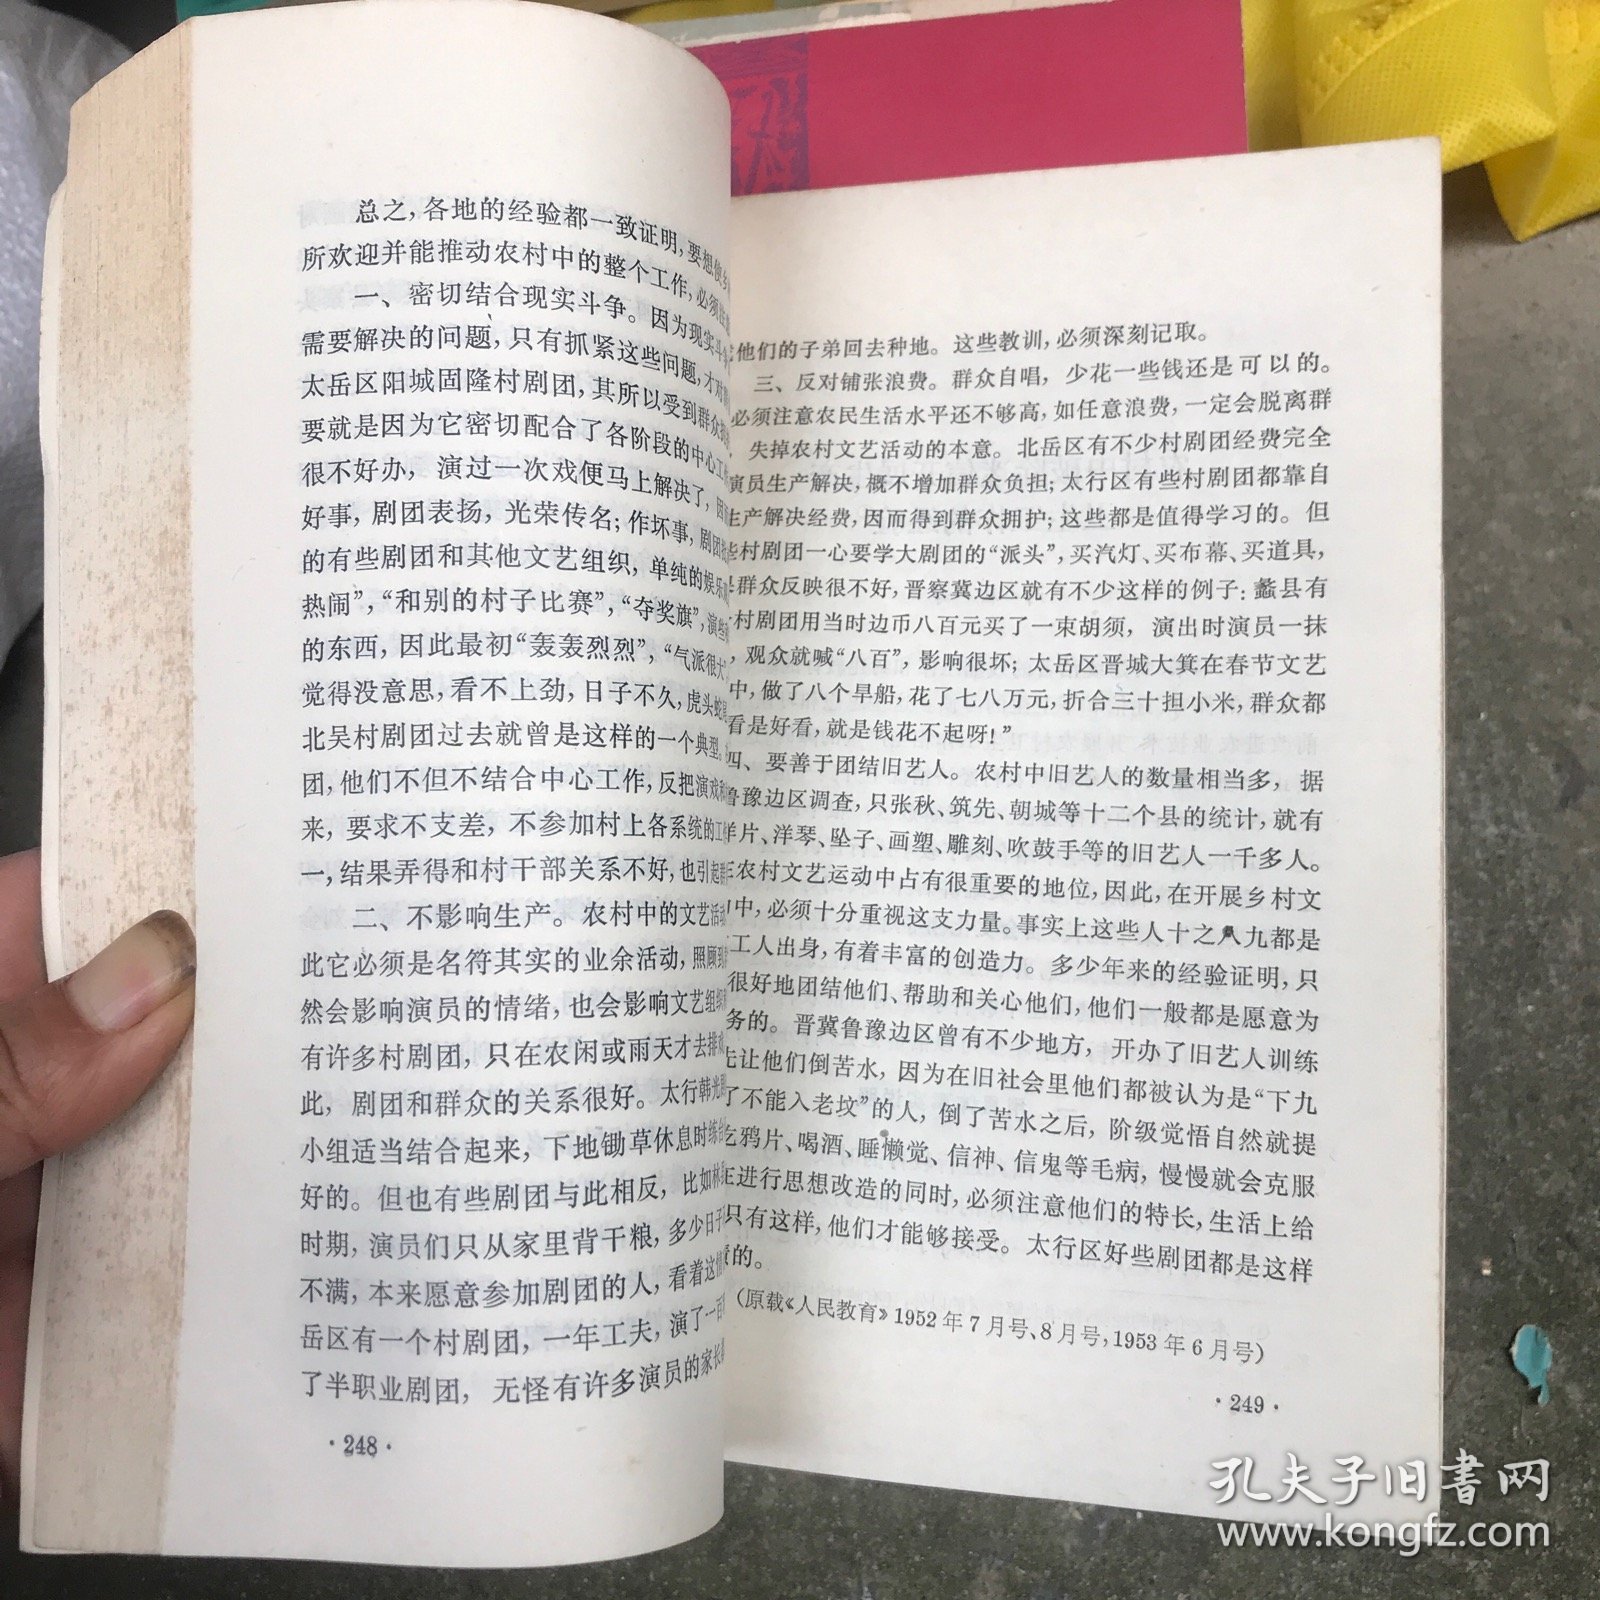 总之，各地的经验都一致证明，要想使乡
所欢迎并能推动农村中的整个工作，必须注意
一、密切结合现实斗争。因为现实斗争
需要解决的问题，只有抓紧这些问题，才对
太岳区阳城固隆村剧团，其所以受到群众
要就是因为它密切配合了各阶段的中心工
很不好办，演过一次戏便马上解决了，因
好事，剧团表扬，光荣传名；作坏事，剧团
的有些剧团和其他文艺组织，单纯的娱乐
热闹”，“和别的村子比赛”，“夺奖旗”，演些
的东西，因此最初“轰轰烈烈”，“气派很大
觉得没意思，看不上劲，日子不久，虎头蛇尾
北吴村剧团过去就曾是这样的一个典型。
团，他们不但不结合中心工作，反把演戏和
来，要求不支差，不参加村上各系统的工
一，结果弄得和村干部关系不好，也引起群
二、不影响生产。农村中的文艺活动
此它必须是名符其实的业余活动，照顾到
然会影响演员的情绪，也会影响文艺组织
有许多村剧团，只在农闲或雨天才去排戏
此，剧团和群众的关系很好。太行韩光
小组适当结合起来，下地锄草休息时练
好的。但也有些剧团与此相反，比如林
时期，演员们只从家里背干粮，多少日子
不满，本来愿意参加剧团的人，看着这情
岳区有一个村剧团，一年工夫，演了一百
了半职业剧团，无怪有许多演员的家长
·248·
他们的子弟回去种地。这些教训，必须深刻记取。
三、反对铺张浪费。群众自唱，少花一些钱还是可以的。
必须注意农民生活水平还不够高，如任意浪费，一定会脱离群
失掉农村文艺活动的本意。北岳区有不少村剧团经费完全
演员生产解决，概不增加群众负担；太行区有些村剧团都靠自
生产解决经费，因而得到群众拥护；这些都是值得学习的。但
些村剧团一心要学大剧团的“派头”，买汽灯、买布幕、买道具，
群众反映很不好，晋察冀边区就有不少这样的例子：蠡县有
村剧团用当时边币八百元买了一束胡须，演出时演员一抹
，观众就喊“八百”，影响很坏；太岳区晋城大箕在春节文艺
中，做了八个旱船，花了七八万元，折合三十担小米，群众都
看是好看，就是钱花不起呀！”
四、要善于团结旧艺人。农村中旧艺人的数量相当多，据
鲁豫边区调查，只张秋、筑先、朝城等十二个县的统计，就有
羊片、洋琴、坠子、画塑、雕刻、吹鼓手等的旧艺人一千多人。
农村文艺运动中占有很重要的地位，因此，在开展乡村文
中，必须十分重视这支力量。事实上这些人十之八九都是
工人出身，有着丰富的创造力。多少年来的经验证明，只
很好地团结他们、帮助和关心他们，他们一般都是愿意为
务的。晋冀鲁豫边区曾有不少地方，开办了旧艺人训练
先让他们倒苦水，因为在旧社会里他们都被认为是“下九
了不能入老坟”的人，倒了苦水之后，阶级觉悟自然就提
吃鸦片、喝酒、睡懒觉、信神、信鬼等毛病，慢慢就会克服
在进行思想改造的同时，必须注意他们的特长，生活上给
只有这样，他们才能够接受。太行区好些剧团都是这样
的。
（原载《人民教育》1952年7月号、8月号，1953年6月号）
·249·
孔夫子旧書网
www.kongfz.com